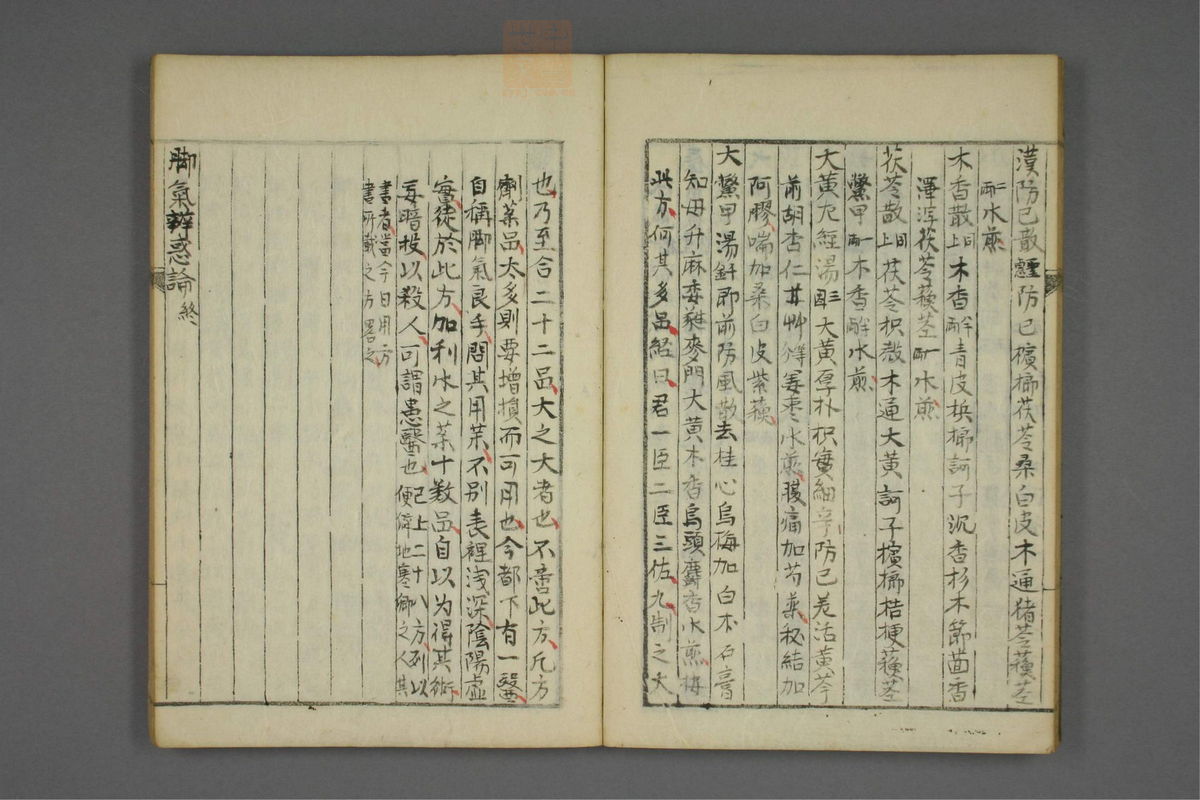 漢防已散 防已檳榔茯苓桑白皮木通猪苓蘓莖
二兩水煎
木香散同上木香半兩青皮檳榔訶子沉香杉木節茴香
渾淳茯苓蘓莖一兩水煎
茯苓散同上茯苓枳殼木通大黄訶子檳榔桔梗蘓莖
鱉甲一兩木香半兩水煎
大黄左經湯三因大黄厚朴枳實細辛防已羗活黄芩
前胡杏仁甘艸等姜枣水煎腹痛加芍藥秘結加
阿膠喘加桑白皮紫蘓
大鱉甲湯 即前防風散去桂心烏梅加白朮石膏
知毋升麻委蕤麥門大黄木香烏頭麝香水煎按
此方何其多品経曰君一臣二臣三佐九制之大
也乃至合二十二品大之大者也不啻此方凡方
劑薬品太多則要増損而可用也今都下有一醫
自称脚氣良手問其用薬不別表裡浅深陰陽虚
實徒於此方加利水之薬十数品自以为得其術
妄暗投以殺人可謂愚醫也已上二十八方列以
便僻地寒鄉之人其
書者當今日用方
書所載之方畧之
脚氣辨惑論終